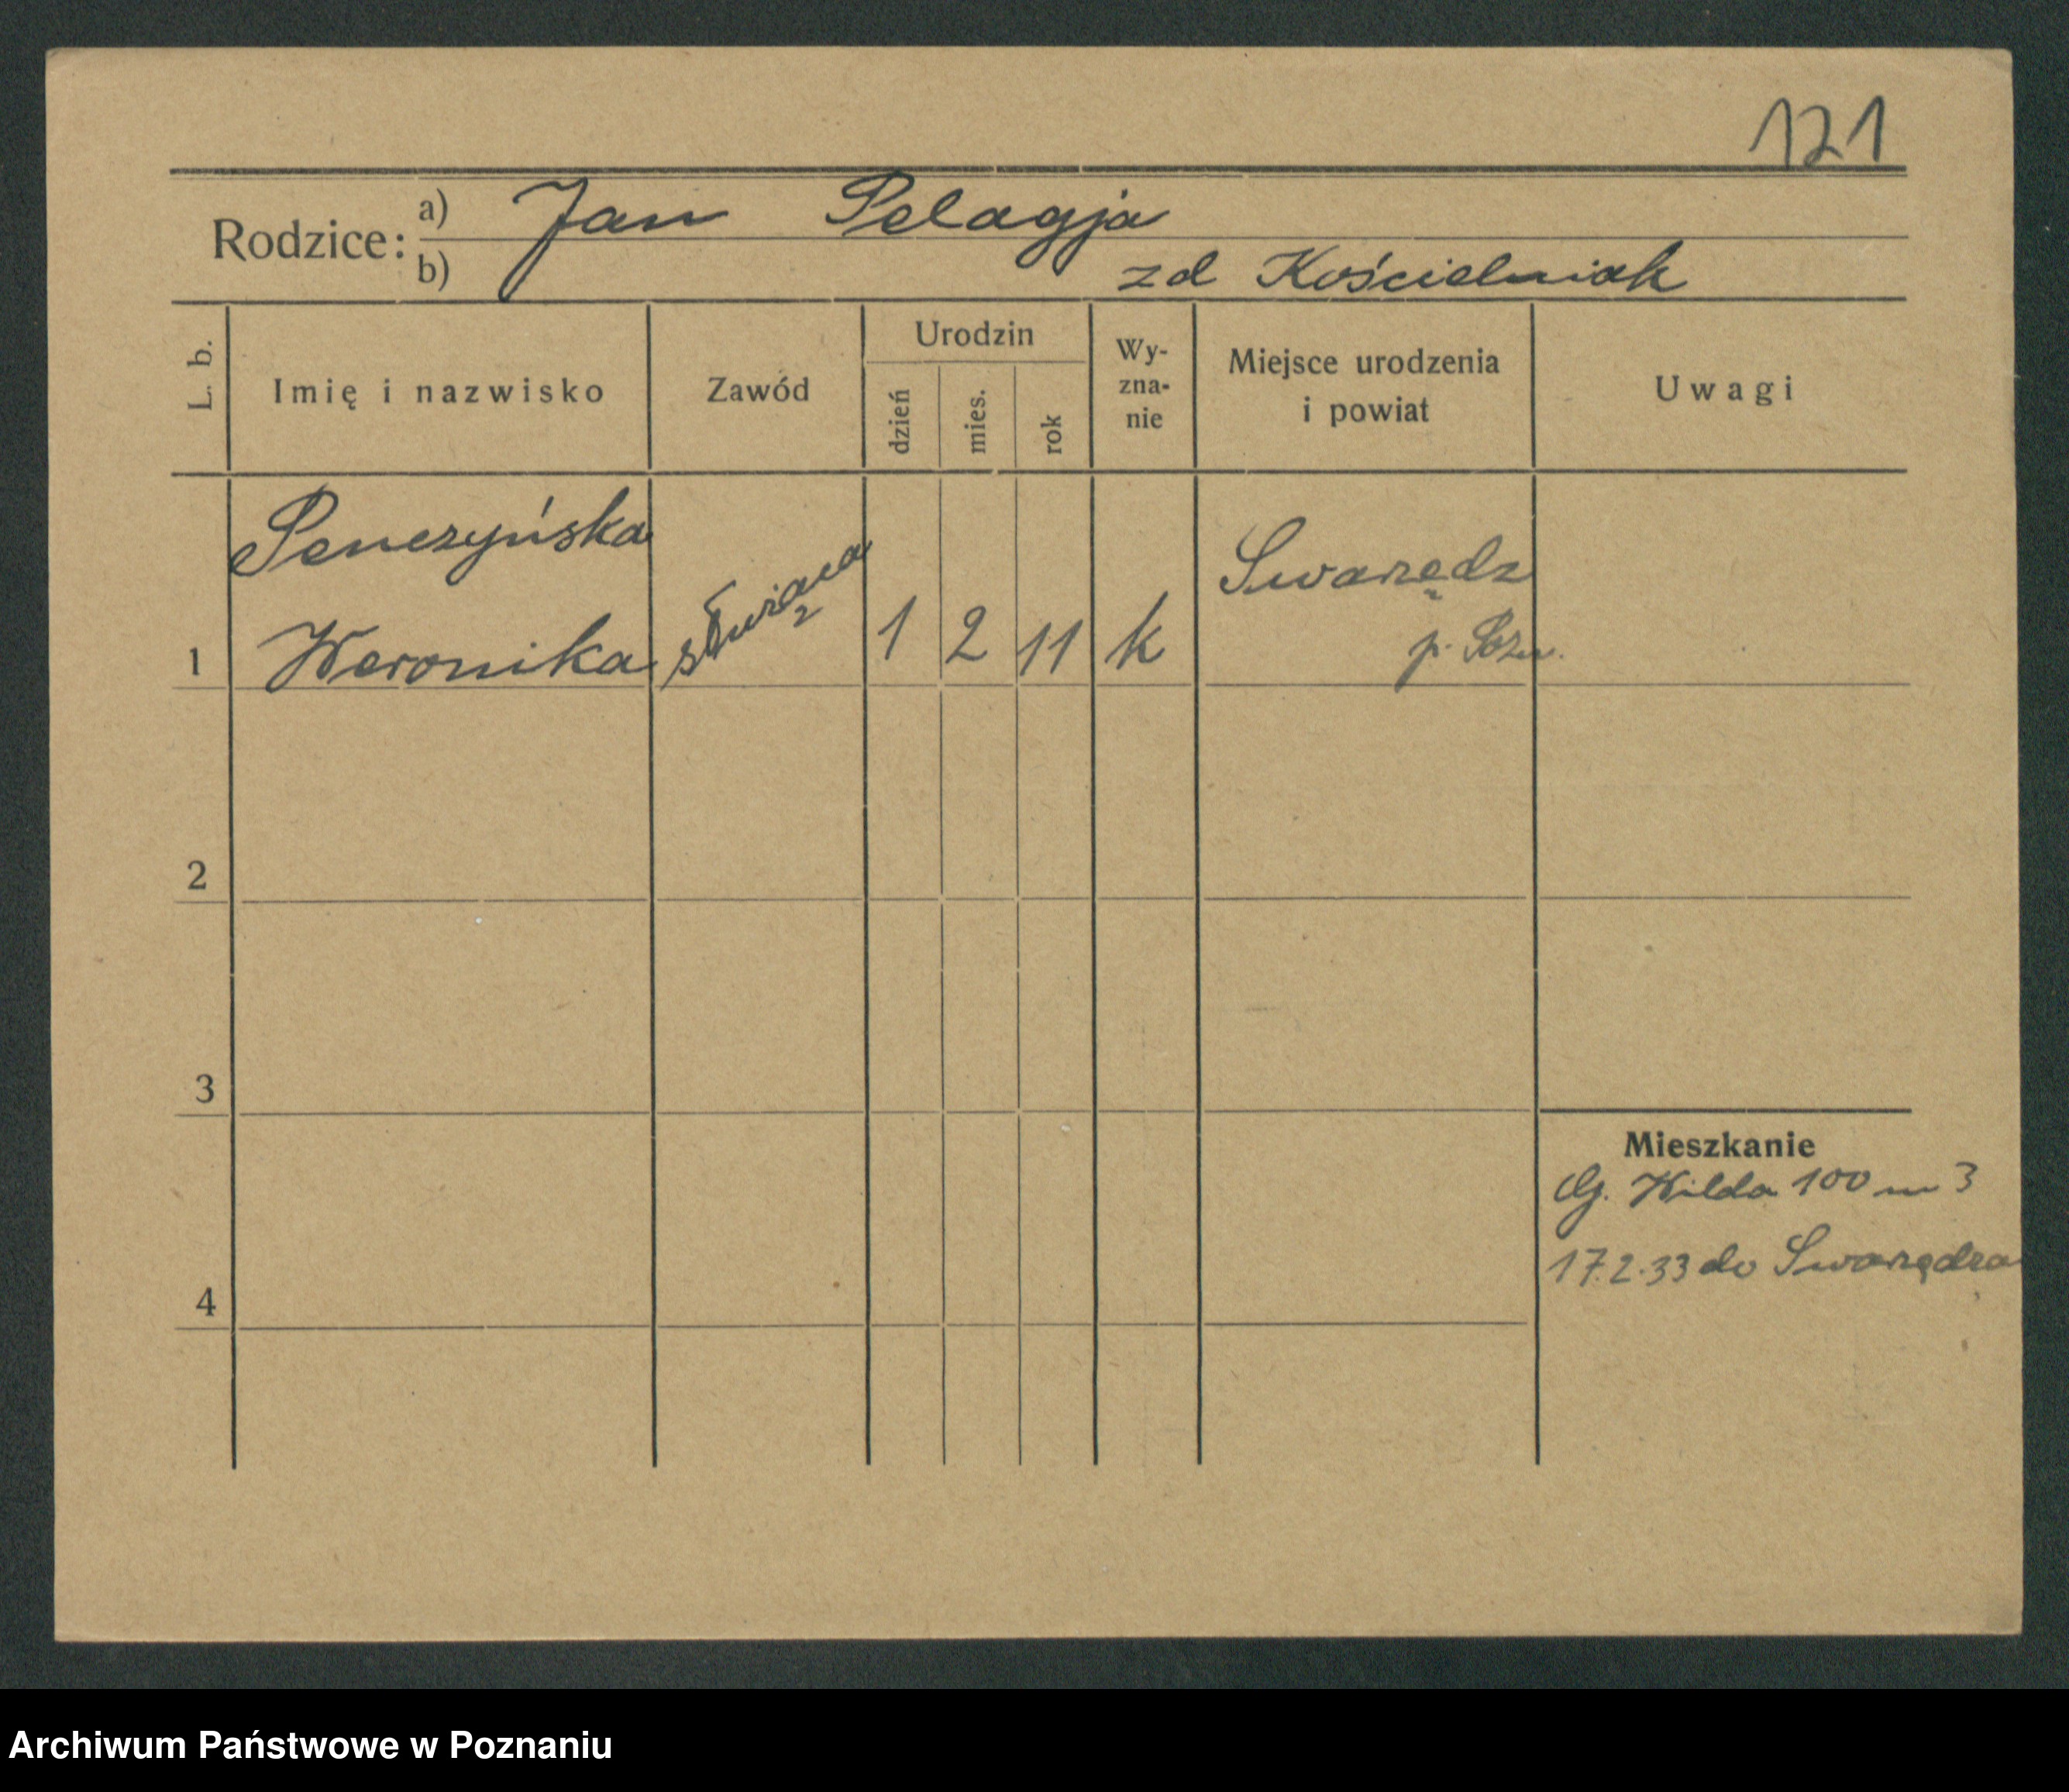 121
Rodzice: a) Jan Pelagja
b) zd Kościelniak
L. b. Imię i nazwisko Zawód Urodzin dzień mies. rok Wy-zna-nie Miejsce urodzenia i powiat Uwagi
Penczyńska
1 Weronika służąca 1 2 11 k Swarzędz
p. Pozn.
2
3
Mieszkanie
G. Wilda 100 m 3
17.2.33 do Swarzędza
4
Archiwum Państwowe w Poznaniu